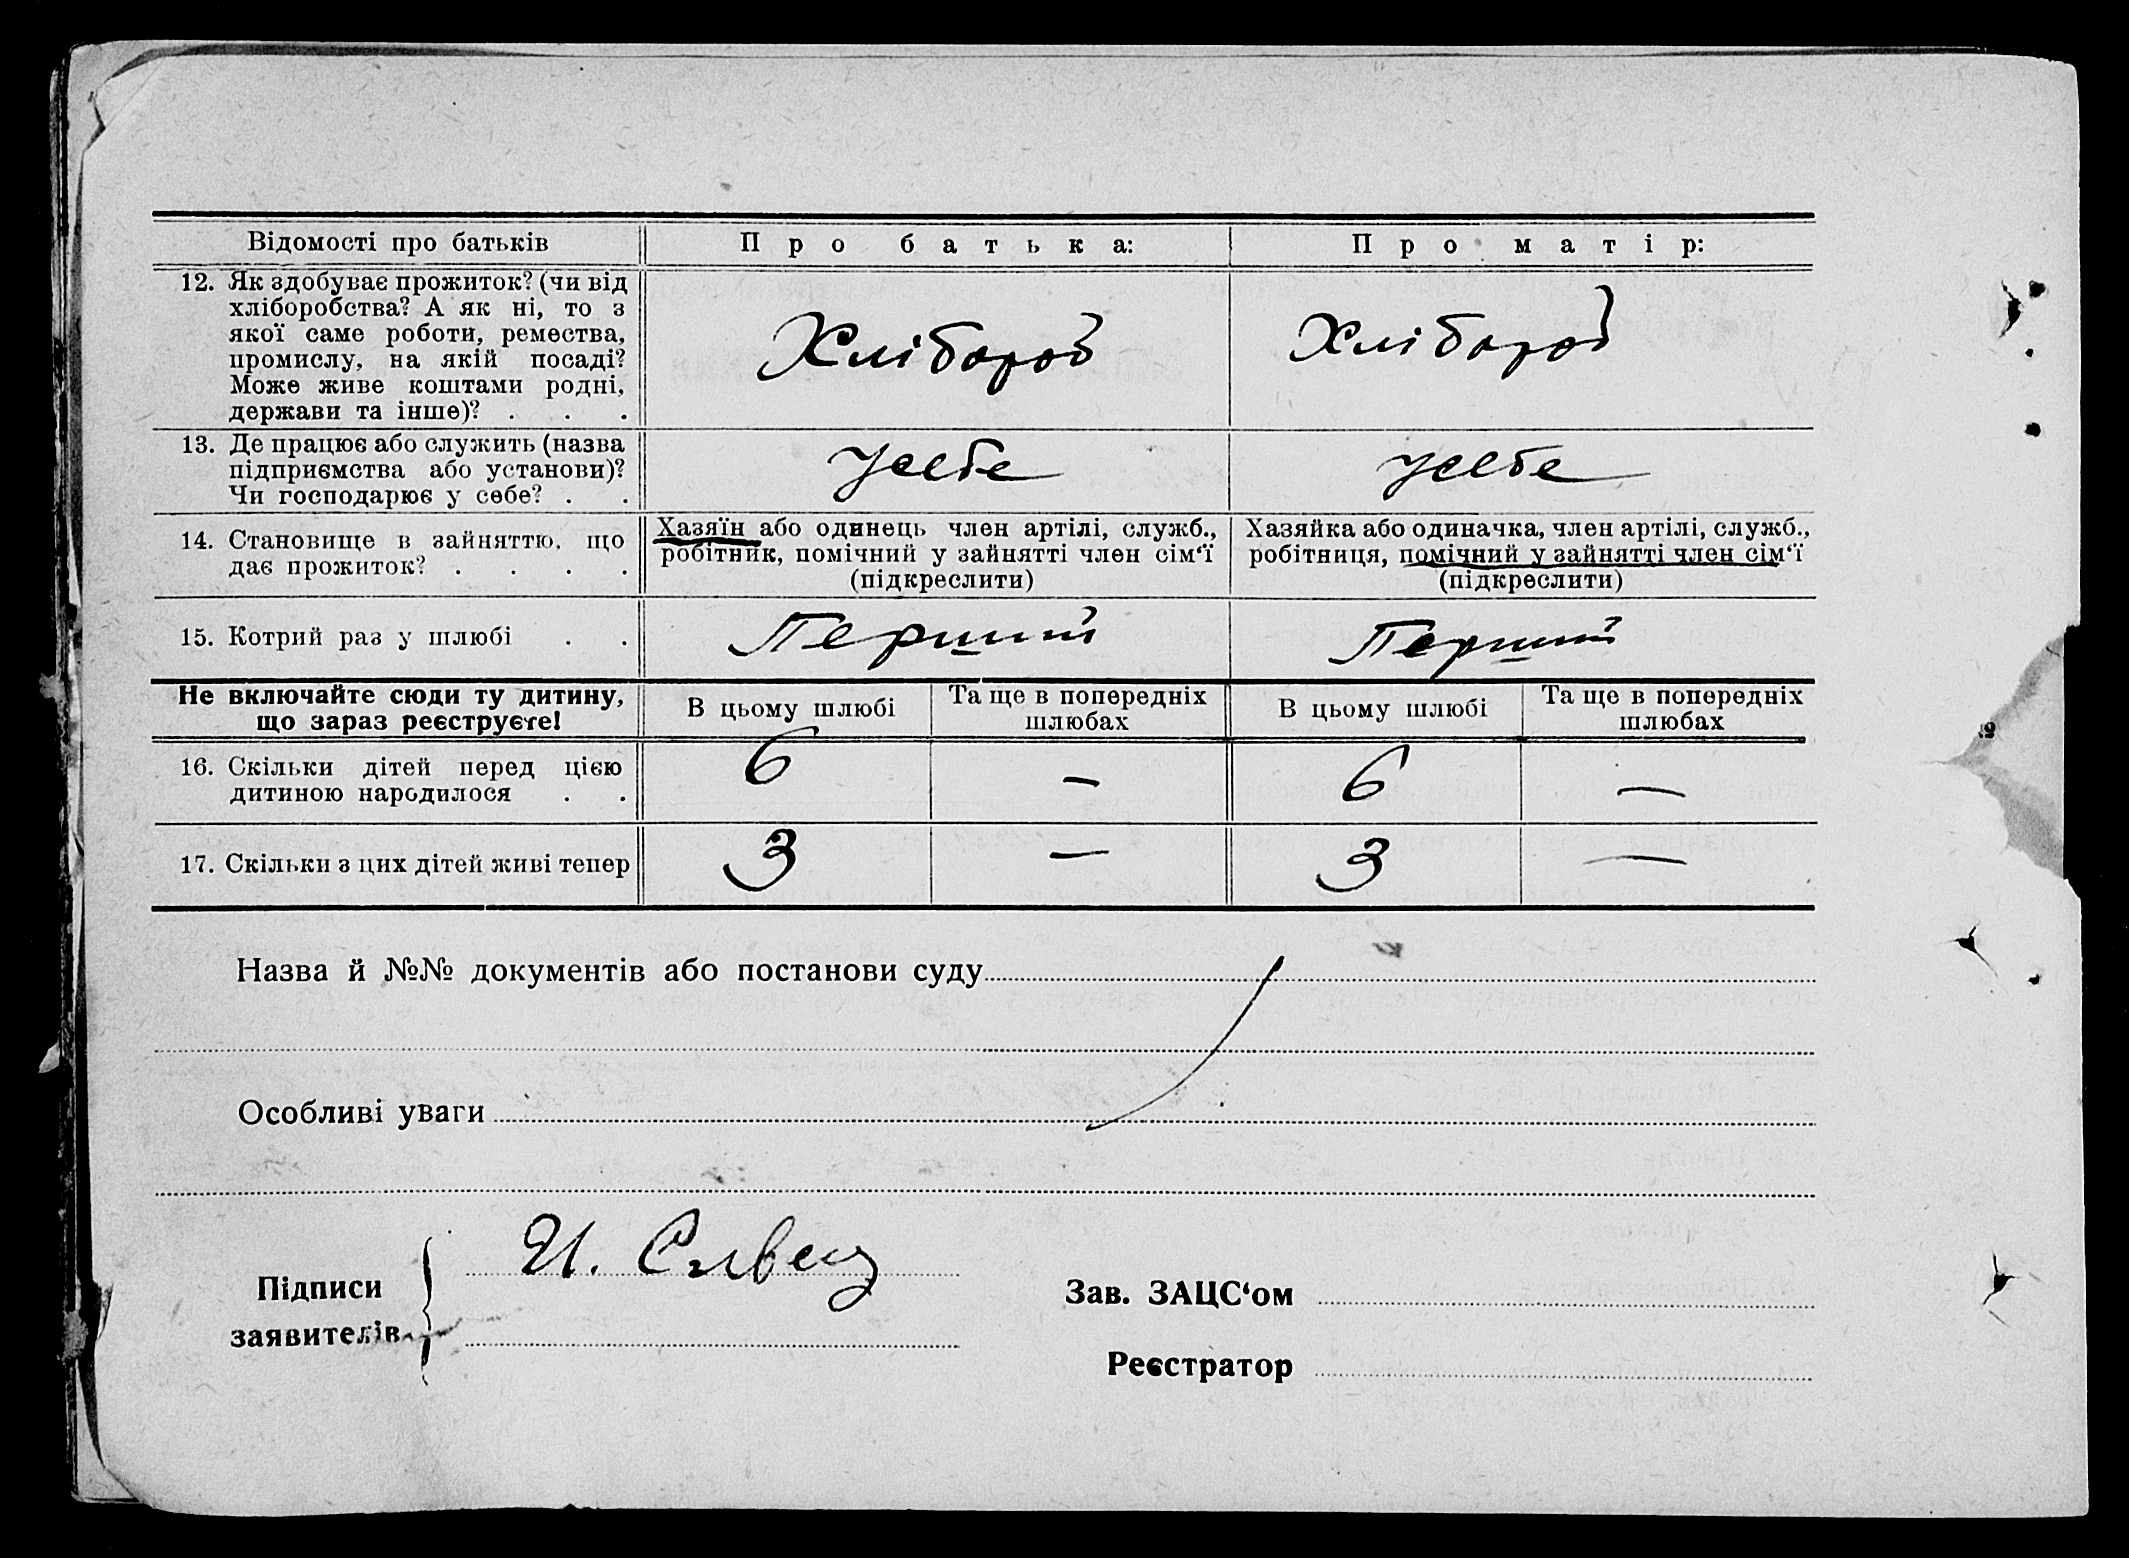 Відомості про батьків Про батька: Про матір:
12. Як здобуває прожиток? (чи від
хліборобства? А як ні, то з
якої саме роботи, ремества,
промислу, на якій посаді?
Може живе коштами родні,
держави та інше)? . . .
Хлібороб Хлібороб
13. Де працює або служить (назва
підприємства або установи)?
Чи господарює у себе? . .
усебе усебе
14. Становище в зайняттю, що
дає прожиток? . . . .
Хазяїн або одинець член артілі, служб.,
робітник, помічний у зайнятті член сім‘ї
(підкреслити)
Хазяйка або одиначка, член артілі, служб.,
робітниця, помічний у зайнятті член сім‘ї
(підкреслити)
15. Котрий раз у шлюбі . .
Перший Перший
Не включайте сюди ту дитину,
що зараз реєструєте!
В цьому шлюбі
Та ще в попередніх
шлюбах
В цьому шлюбі
Та ще в попередніх
шлюбах
16. Скільки дітей перед цією
дитиною народилося . .
6 — 6 —
17. Скільки з цих дітей живі тепер
3 — 3 —
Назва й №№ документів або постанови суду
Особливі уваги
Підписи
заявителів
И.
Зав. ЗАЦС‘ом
Реєстратор